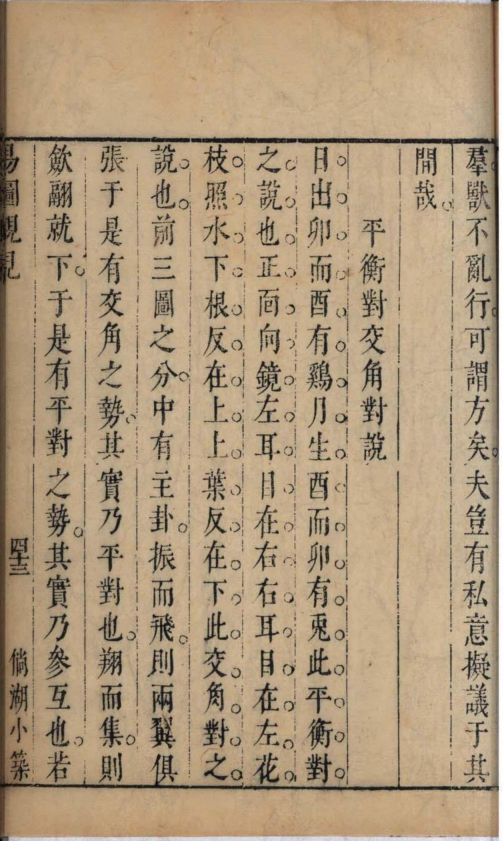 羣獸不亂行可謂方矣夫豈有私意擬議于其
間哉
平衡對交角對說
日出卯而酉有鷄月生酉而卯有兎此平衡對
之說也正面向鏡左耳目在右右耳目在左花
枝照水下根反在上上葉反在下此交角對之
說也前三圖之分中有主卦振而飛則兩翼俱
張于是有交角之勢其實乃平對也翔而集則
斂翮就下于是有平對之勢其實乃參互也若
易圖親見 四十三 倘湖小築